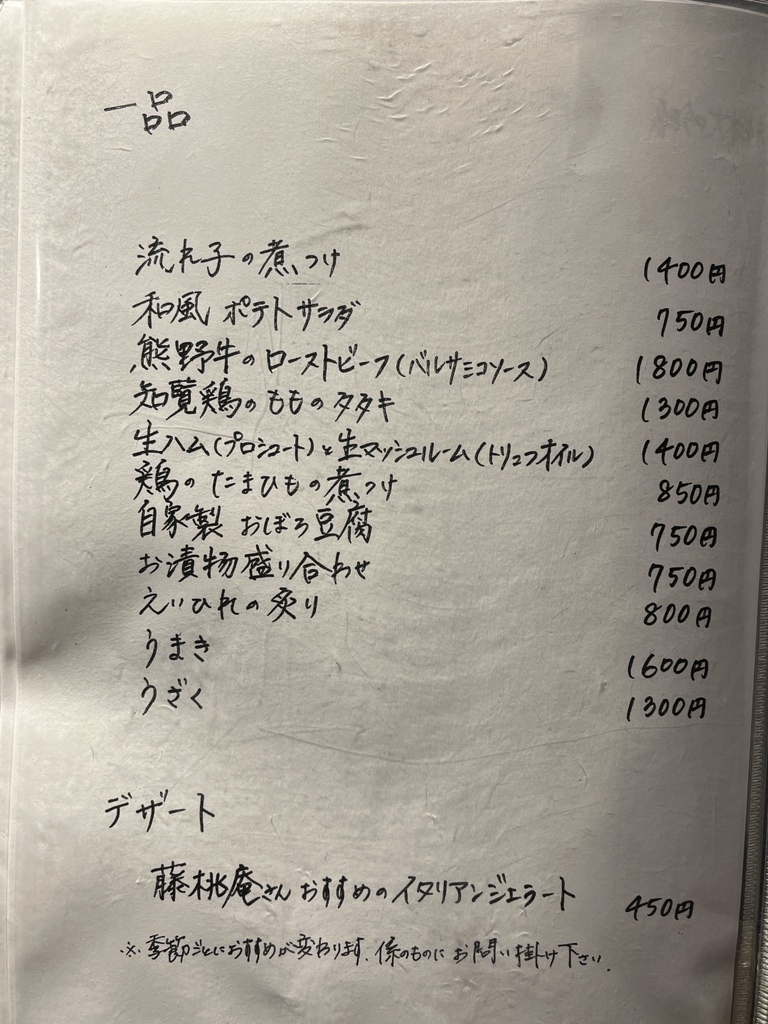 一品
流れ子の煮つけ 1400円
和風 ポテトサラダ 750円
熊野牛のローストビーフ(バルサミコソース) 1800円
知覧鶏のもものタタキ 1300円
生ハム(プロシュート)と生マッシュルーム(トリュフオイル) 1400円
鶏のたまひもの煮つけ 850円
自家製 おぼろ豆腐 750円
お漬物盛り合わせ 750円
えいひれの炙り 800円
うまき 1600円
うざく 1300円
デザート
藤桃庵さんおすすめのイタリアンジェラート 450円
※季節ごとにおすすめが変わります、係のものにお問い掛け下さい。